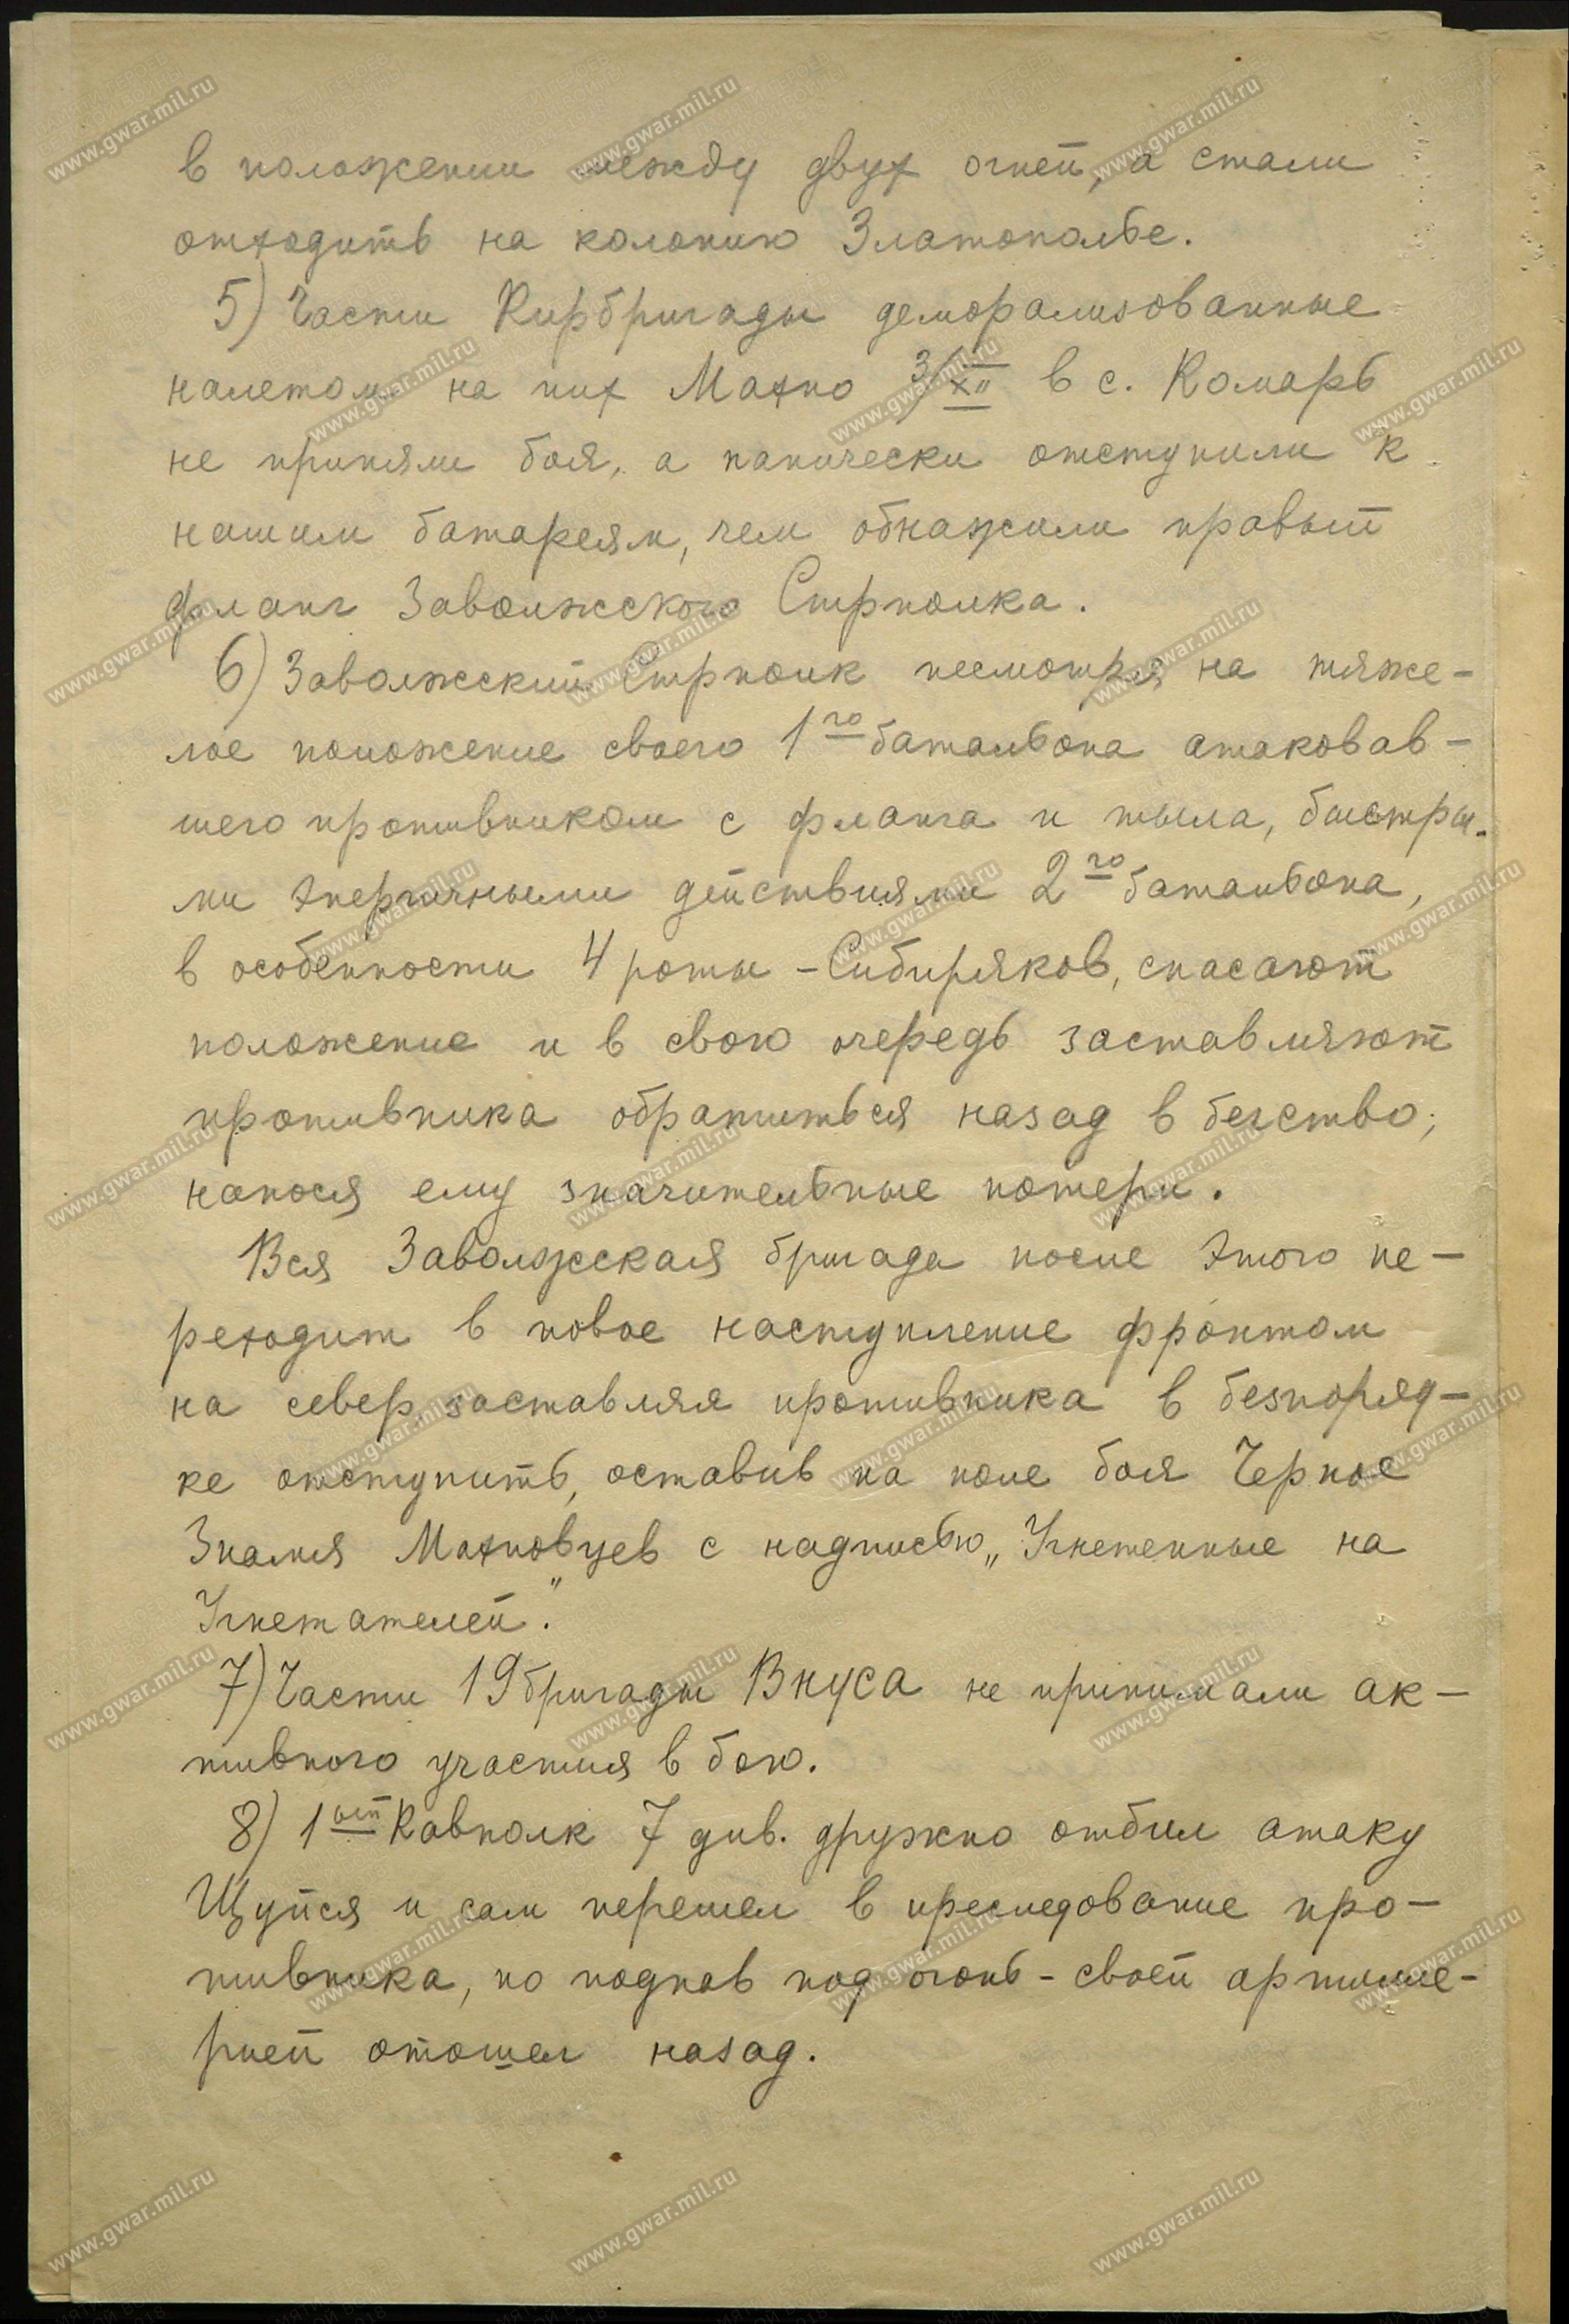 в положении между двух огней, а стали
отходить на колонию Златополье.
5) Части Кирбригады деморализованные
налетом на них Махно 3/XII в с. Комарь
не приняли боя, а панически отступили к
нашим батареям, чем обнажили правый
фланг Заволжского Стрполка.
6) Заволжский Стрполк несмотря на тяже-
лое положение своего 1го батальона атаковав-
шего противником с фланга и тыла, быстры-
ми энергичными действиями 2го батальона,
в особенности 4 роты - Сибиряков, спасают
положение и в свою очередь заставляют
противника обратиться назад в бегство,
нанося ему значительные потери.
Вся Заволжская бригада после этого пе-
реходит в новое наступление фронтом
на север заставляя противника в безпоряд-
ке отступить, оставив на поле боя Черное
Знамя Махновцев с надписью „Угнетенные на
Угнетателей".
7) Части 19 бригады Внуса не принимали ак-
тивного участия в бою.
8) 1ый Кавполк 7 див. дружно отбил атаку
Щуйся и сам перешел в преследование про-
тивника, но попав под огонь - своей артилле-
рией отошел назад.
www.gwar.mil.ru